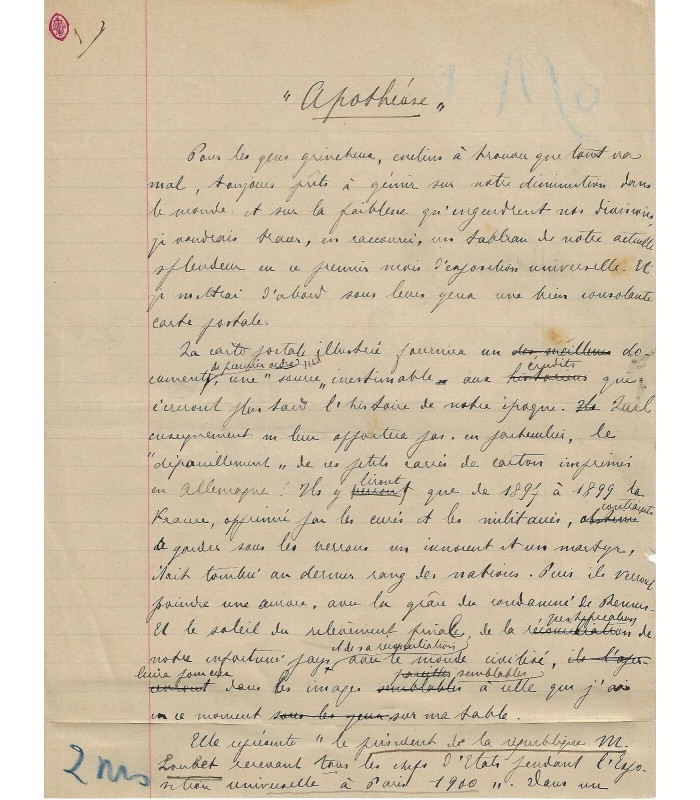 " Apothéose "
Pour les gens grincheux, enclins à trouver que tout va
mal, toujours prêts à gémir sur notre diminution dans
le monde et sur la faiblesse qu'engendrent nos divisions,
je voudrais tracer, en raccourci, un tableau de notre actuelle
splendeur en ce premier mois d'exposition universelle. Et
je mettrai d'abord sous leurs yeux une bien consolante
carte postale.
La carte postale illustrée fournira un des meilleurs do-
de premier ordre érudits
cuments, une "source" inestimable aux historiens qui
écriront plus tard l'histoire de notre époque. Ils Quel
enseignement ne leur apportera pas, en particulier, le
"dépouillement" de ces petits carrés de carton imprimés
liront
en Allemagne ! Ils y verront que de 1895 à 1899 la
contrainte
France, opprimée par les curés et les militaires,
de garder sous les verrous un innocent et un martyr,
était tombée au dernier rang des nations. Puis ils verront
poindre une aurore, avec la grâce du condamné de Rennes.
Et le soleil du relèvement final, de la réconciliation de
et de sa réconciliation
notre infortuné pays avec le monde civilisé,
semblables
dans les images semblables à celle que j'ai
en ce moment sous les yeux sur ma table.
Elle représente " le président de la république M.
2 ms
Loubet recevant tous les chefs d'Etats pendant l'Expo-
sition universelle à Paris 1900 ". Dans un